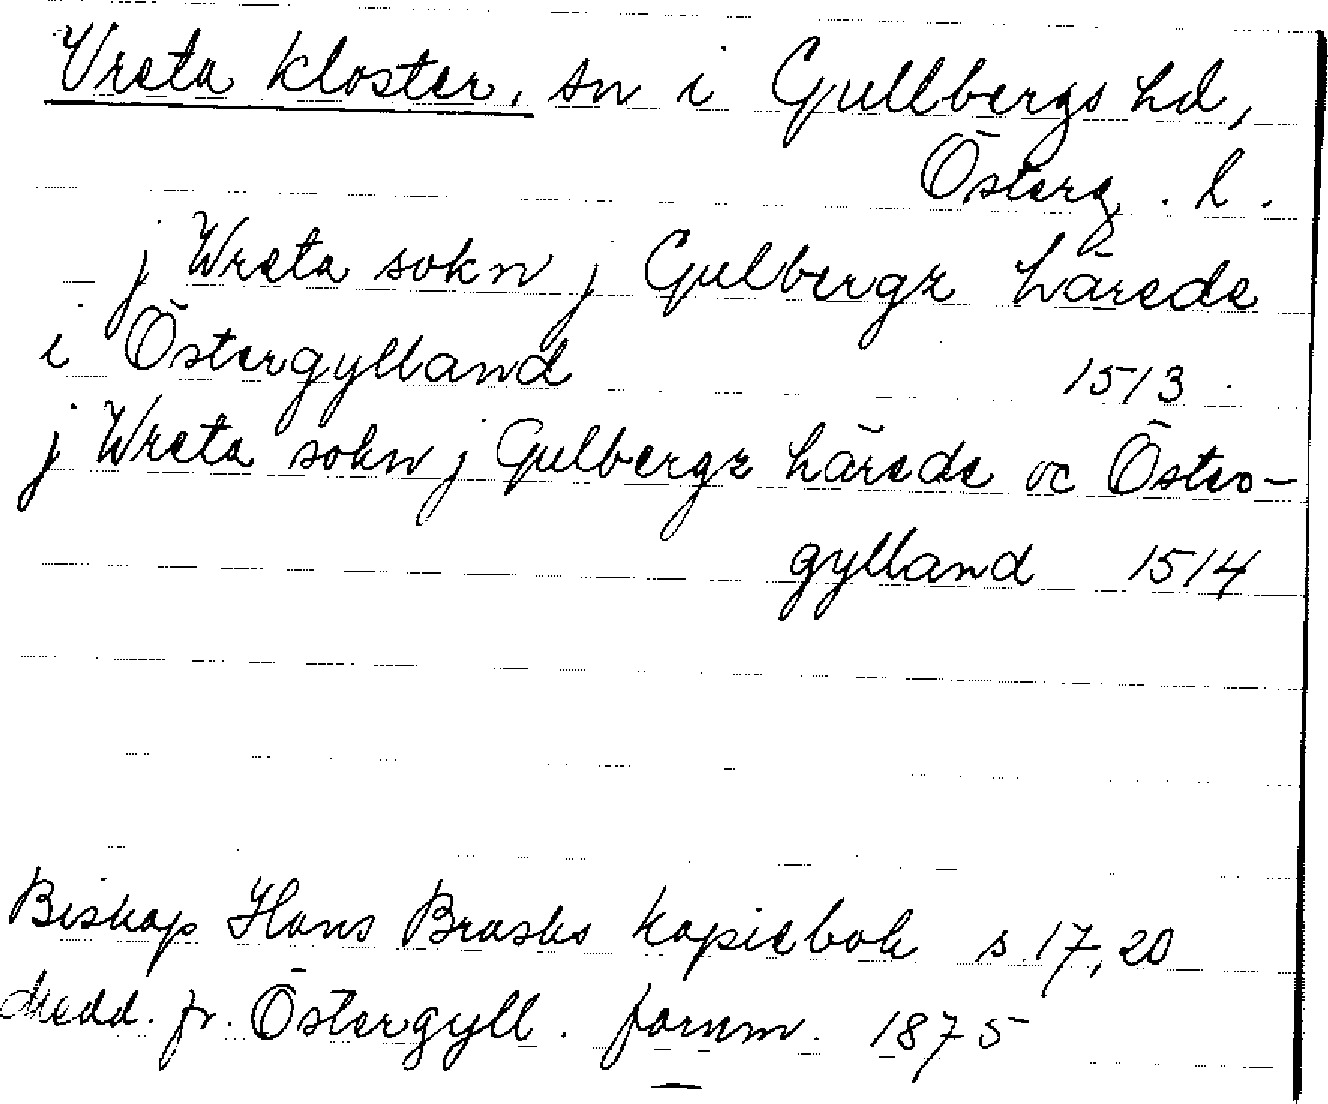 Vreta kloster, sn i Gullbergs hd,
Österg. l.
j Wreta sokn j Gulbergx härede
i Östergylland 1513.
j Wreta sokn j Gulbergx härede oc Öster-
gylland 1514
Biskop Hans Brasks kopiebok s. 17, 20
Medd. fr. Östergyll. fornm. 1875